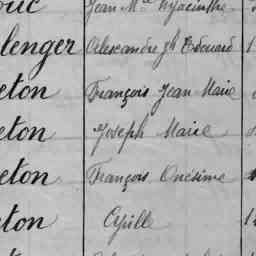 ouc Jean Mie Hyacinthe
lenger Alexandre Jh Edouard 1
eton François Jean Marie
eton Joseph Marie
eton François Onésime
eton Cyrille 1